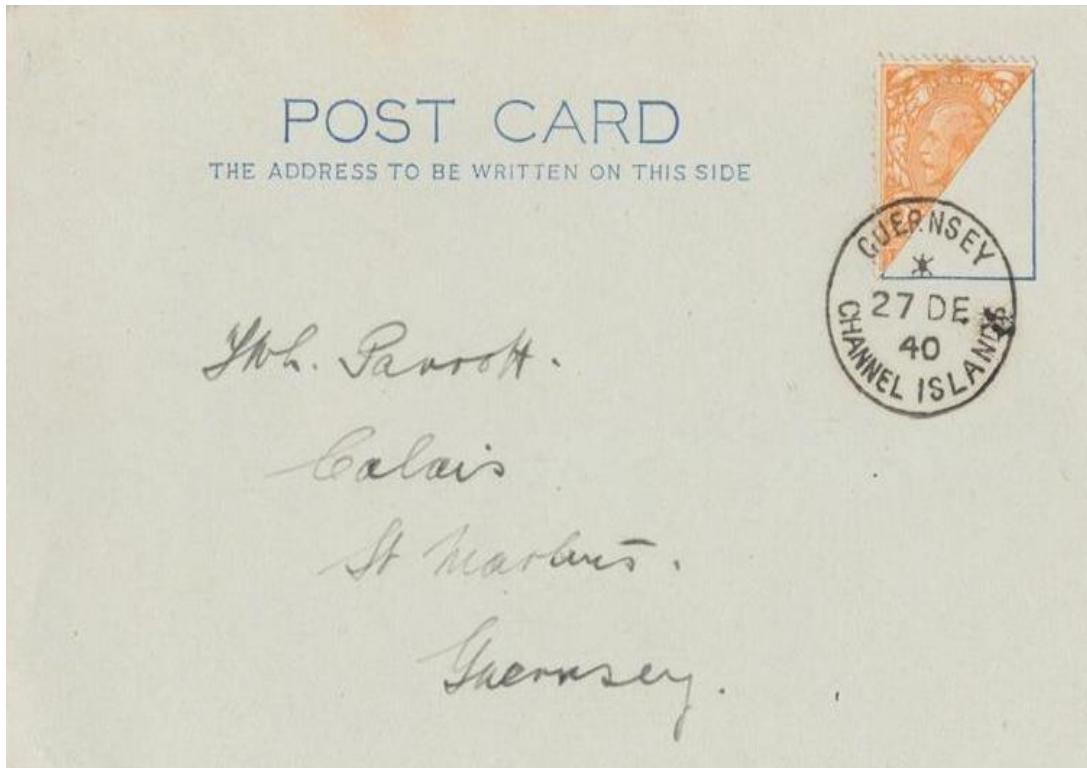 POST CARD
THE ADDRESS TO BE WRITTEN ON THIS SIDE
GUERNSEY
27 DE
40
CHANNEL ISLANDS
Parrott.
Calais
St Martins.
Guernsey.